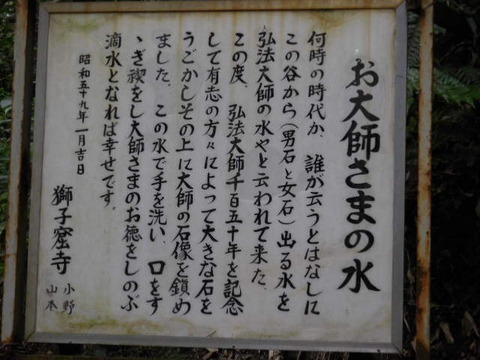 お大師さまの水
何時の時代か、誰が云うとはなしに
この谷から(男石と女石)出る水を
弘法大師の水やと云われて来た。
この度、弘法大師千百五十年を記念
して有志の方々によって大きな石を
うごかしその上に大師の石像を鎮め
ました。この水で手を洗い、口をす
ゝぎ禊をし大師さまのお徳をしのぶ
滴水となれば幸せです。
昭和五十九年一月吉日
獅子窟寺
小野
山本